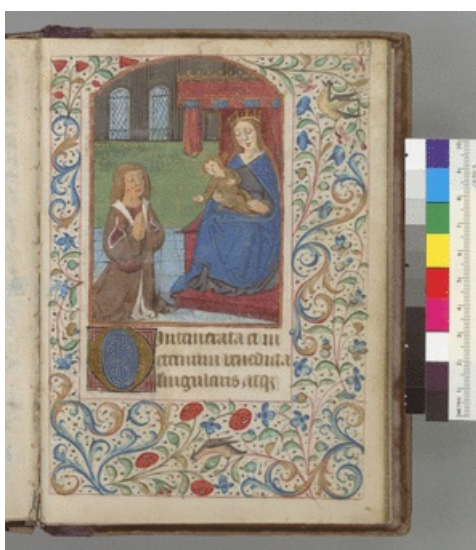 O Intemerata et in
eternum benedicta
singularis atq;